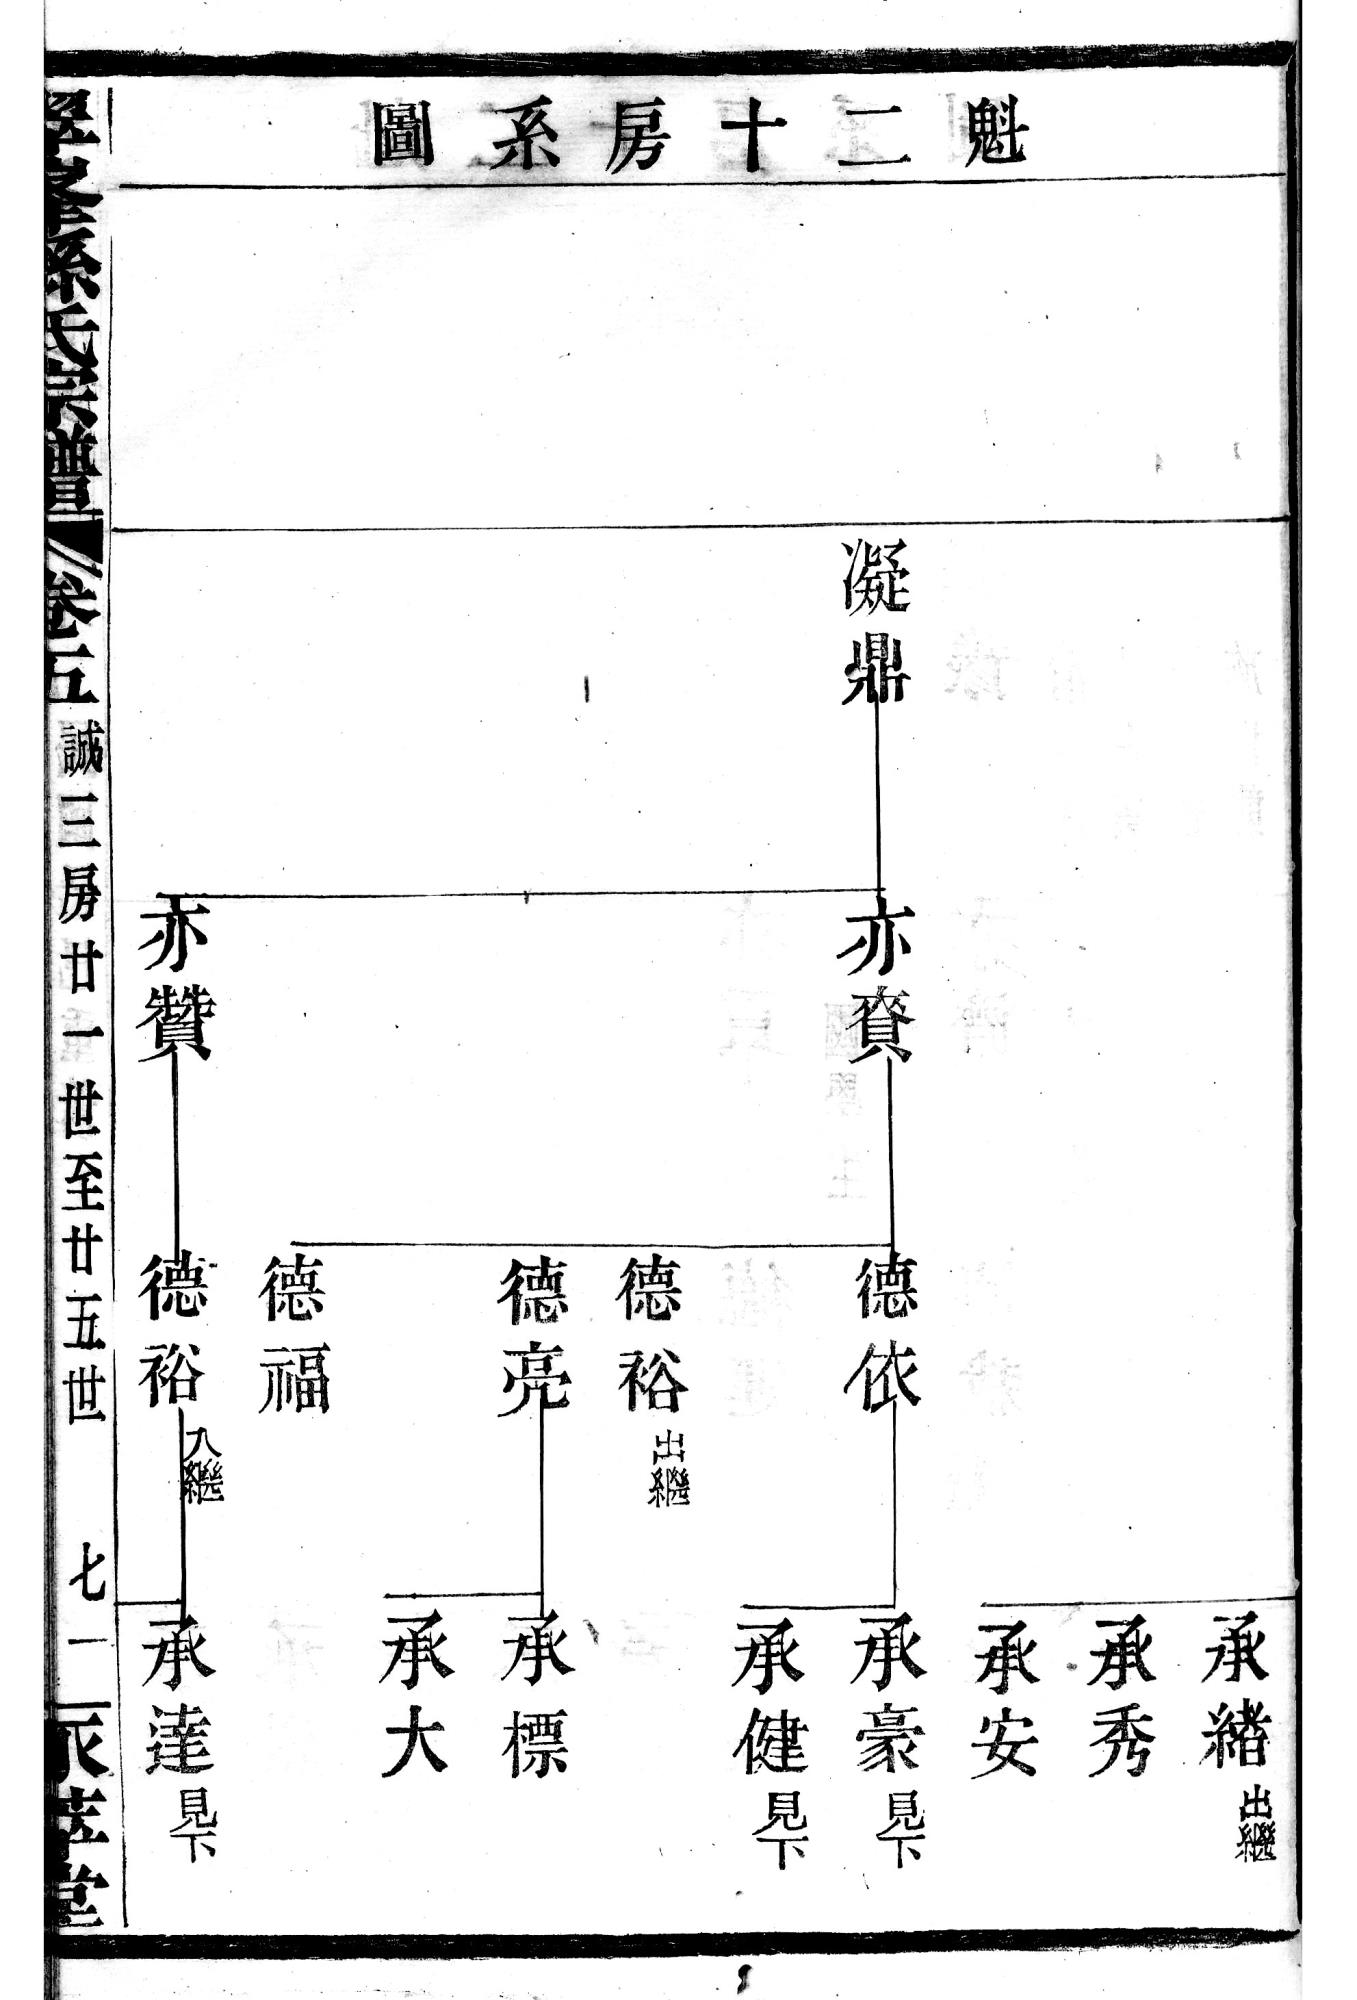 魁二十房系圖
凝鼎
亦賚
亦贊
德依
德裕出繼
德亮
德福
德裕入繼
承緒出繼
承秀
承安
承豪見下
承健見下
承標
承大
承達見下
孫氏宗譜
卷五
誠三房廿一世至廿五世
七一
堂